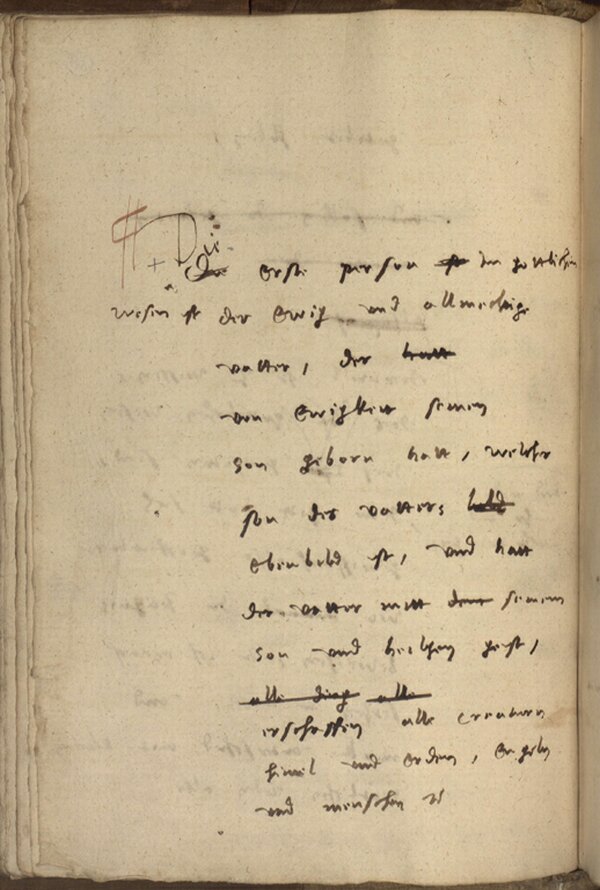 Die
die erste person ist im gottlichen
wesen ist der Ewig und allmechtige
vatter, der hatt
von Ewigkeit seinen
son geborn hatt, welcher
son des vatters bild
Ebenbild ist, und hatt
der vatter mitt dem seinem
son und heiligen geist,
alle ding alle
erschaffen alle creaturn
himel und Erden, Engeln
und menschen